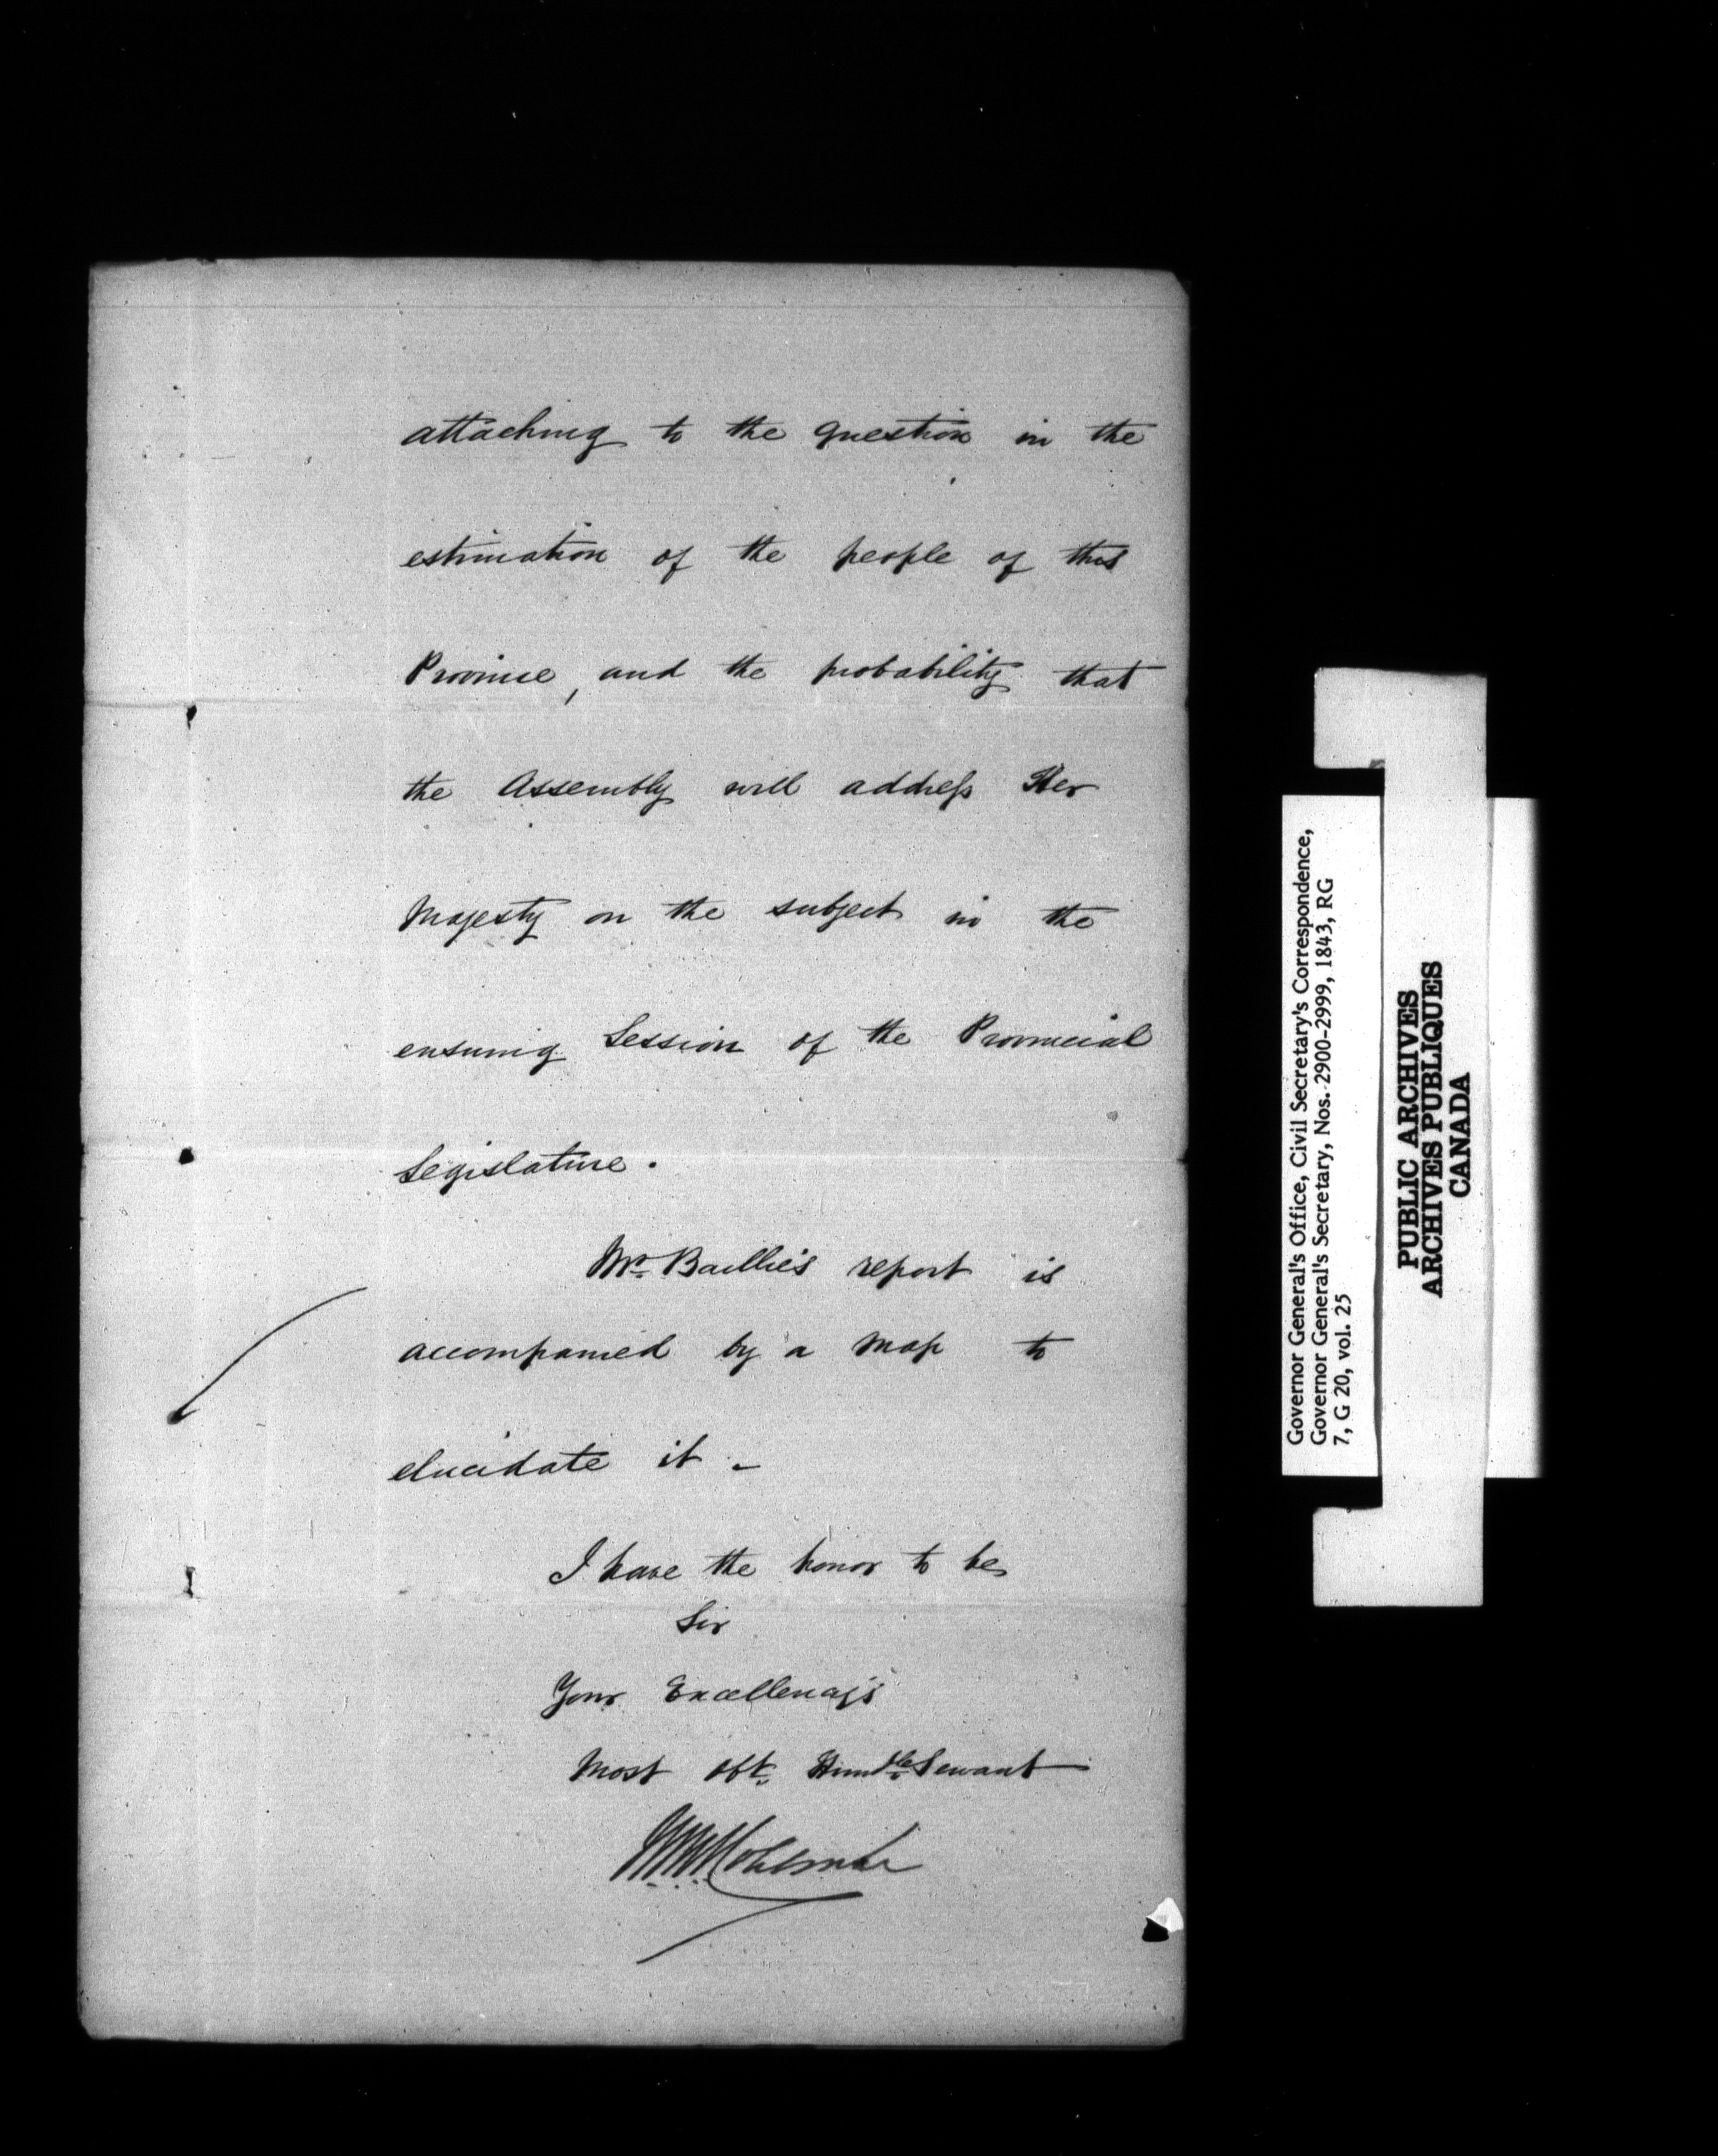 attaching to the question in the
estimation of the people of this
Province, and the probability that
the Assembly will address Her
Majesty on the subject in the
ensuing Session of the Provincial
Legislature.
Mr. Baillie's report is
accompanied by a map to
elucidate it -
I have the honor to be
Sir
Your Excellency's
Most Obt. Humble Servant
Governor General's Office, Civil Secretary's Correspondence,
Governor General's Secretary, Nos. 2900-2999, 1843, RG
7, G 20, vol. 25
PUBLIC ARCHIVES
ARCHIVES PUBLIQUES
CANADA